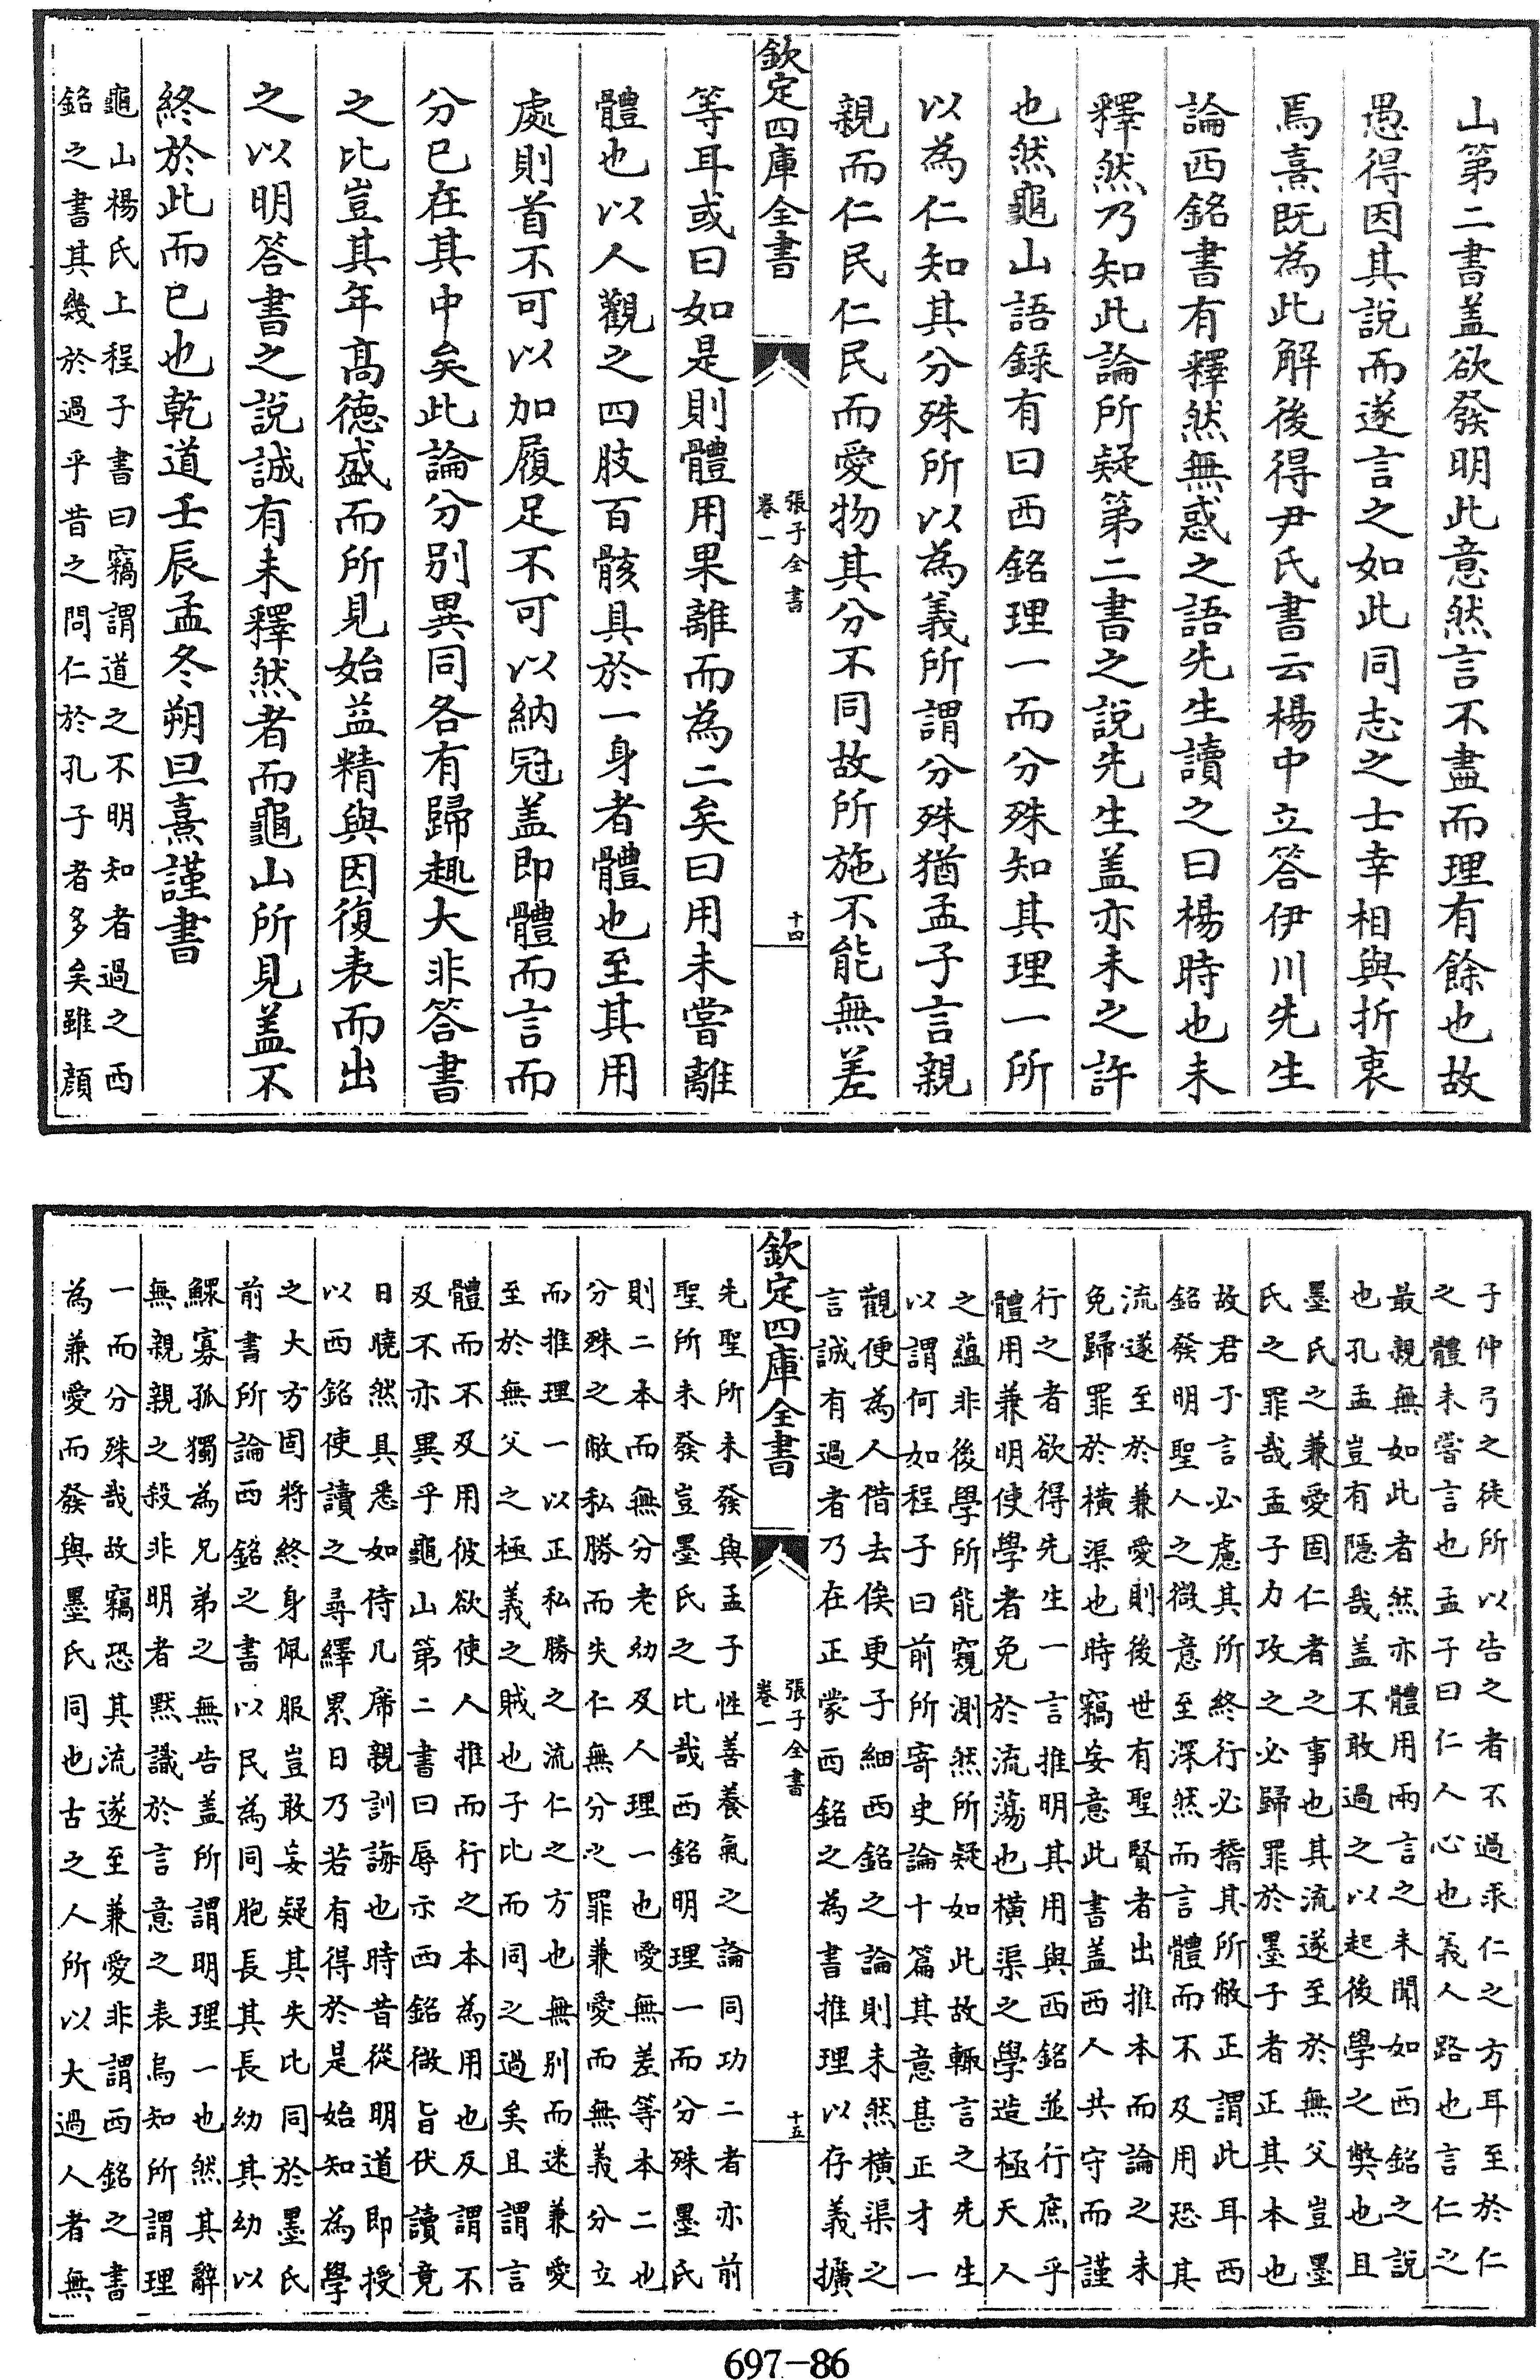 山第二書盖欲發明此意然言不盡而理有餘也故
愚得因其說而遂言之如此同志之士幸相與折衷
焉熹既為此解後得尹氏書云楊中立答伊川先生
論西銘書有釋然無惑之語先生讀之曰楊時也未
釋然乃知此論所疑第二書之說先生盖亦未之許
也然龜山語録有曰西銘理一而分殊知其理一所
以為仁知其分殊所以為義所謂分殊猶孟子言親
親而仁民仁民而愛物其分不同故所施不能無差
欽定四庫全書
張子全書
卷一
十四
等耳或曰如是則體用果離而為二矣曰用未嘗離
體也以人觀之四肢百骸具於一身者體也至其用
處則首不可以加履足不可以納冠盖即體而言而
分已在其中矣此論分别異同各有歸趣大非答書
之比豈其年髙德盛而所見始益精與因復表而出
之以明答書之說誠有未釋然者而龜山所見盖不
終於此而已也乾道壬辰孟冬朔旦熹謹書
龜山楊氏上程子書曰竊謂道之不明知者過之西
銘之書其幾於過乎昔之問仁於孔子者多矣雖顔
子仲弓之徒所以告之者不過求仁之方耳至於仁
之體未嘗言也孟子曰仁人心也義人路也言仁之
最親無如此者然亦體用兩言之未聞如西銘之說
也孔孟豈有隱哉盖不敢過之以起後學之弊也且
墨氏之兼愛固仁者之事也其流遂至於無父豈墨
氏之罪哉孟子力攻之必歸罪於墨子者正其本也
故君子言必慮其所終行必稽其所敝正謂此耳西
銘發明聖人之微意至深然而言體而不及用恐其
流遂至於兼愛則後世有聖賢者出推本而論之未
免歸罪於横渠也時竊妄意此書盖西人共守而謹
行之者欲得先生一言推明其用與西銘並行庶乎
體用兼明使學者免於流蕩也横渠之學造極天人
之藴非後學所能窺測然所疑如此故輒言之先生
以謂何如程子曰前所寄史論十篇其意甚正才一
觀便為人借去俟更子細西銘之論則未然横渠之
言誠有過者乃在正蒙西銘之為書推理以存義擴
欽定四庫全書
張子全書
卷一
十五
先聖所未發與孟子性善養氣之論同功二者亦前
聖所未發豈墨氏之比哉西銘明理一而分殊墨氏
則二本而無分老幼及人理一也愛無差等本二也
分殊之敝私勝而失仁無分之罪兼愛而無義分立
而推理一以正私勝之流仁之方也無別而迷兼愛
至於無父之極義之賊也子比而同之過矣且謂言
體而不及用彼欲使人推而行之本為用也反謂不
及不亦異乎龜山第二書曰辱示西銘微旨伏讀竟
日曉然具悉如侍几席親訓誨也時昔從明道即授
以西銘使讀之尋繹累日乃若有得於是始知為學
之大方固將終身佩服豈敢妄疑其失比同於墨氏
前書所論西銘之書以民為同胞長其長幼其幼以
鰥寡孤獨為兄弟之無告盖所謂明理一也然其辭
無親親之殺非明者黙識於言意之表烏知所謂理
一而分殊哉故竊恐其流遂至兼愛非謂西銘之書
為兼愛而發與墨氏同也古之人所以大過人者無
697-86